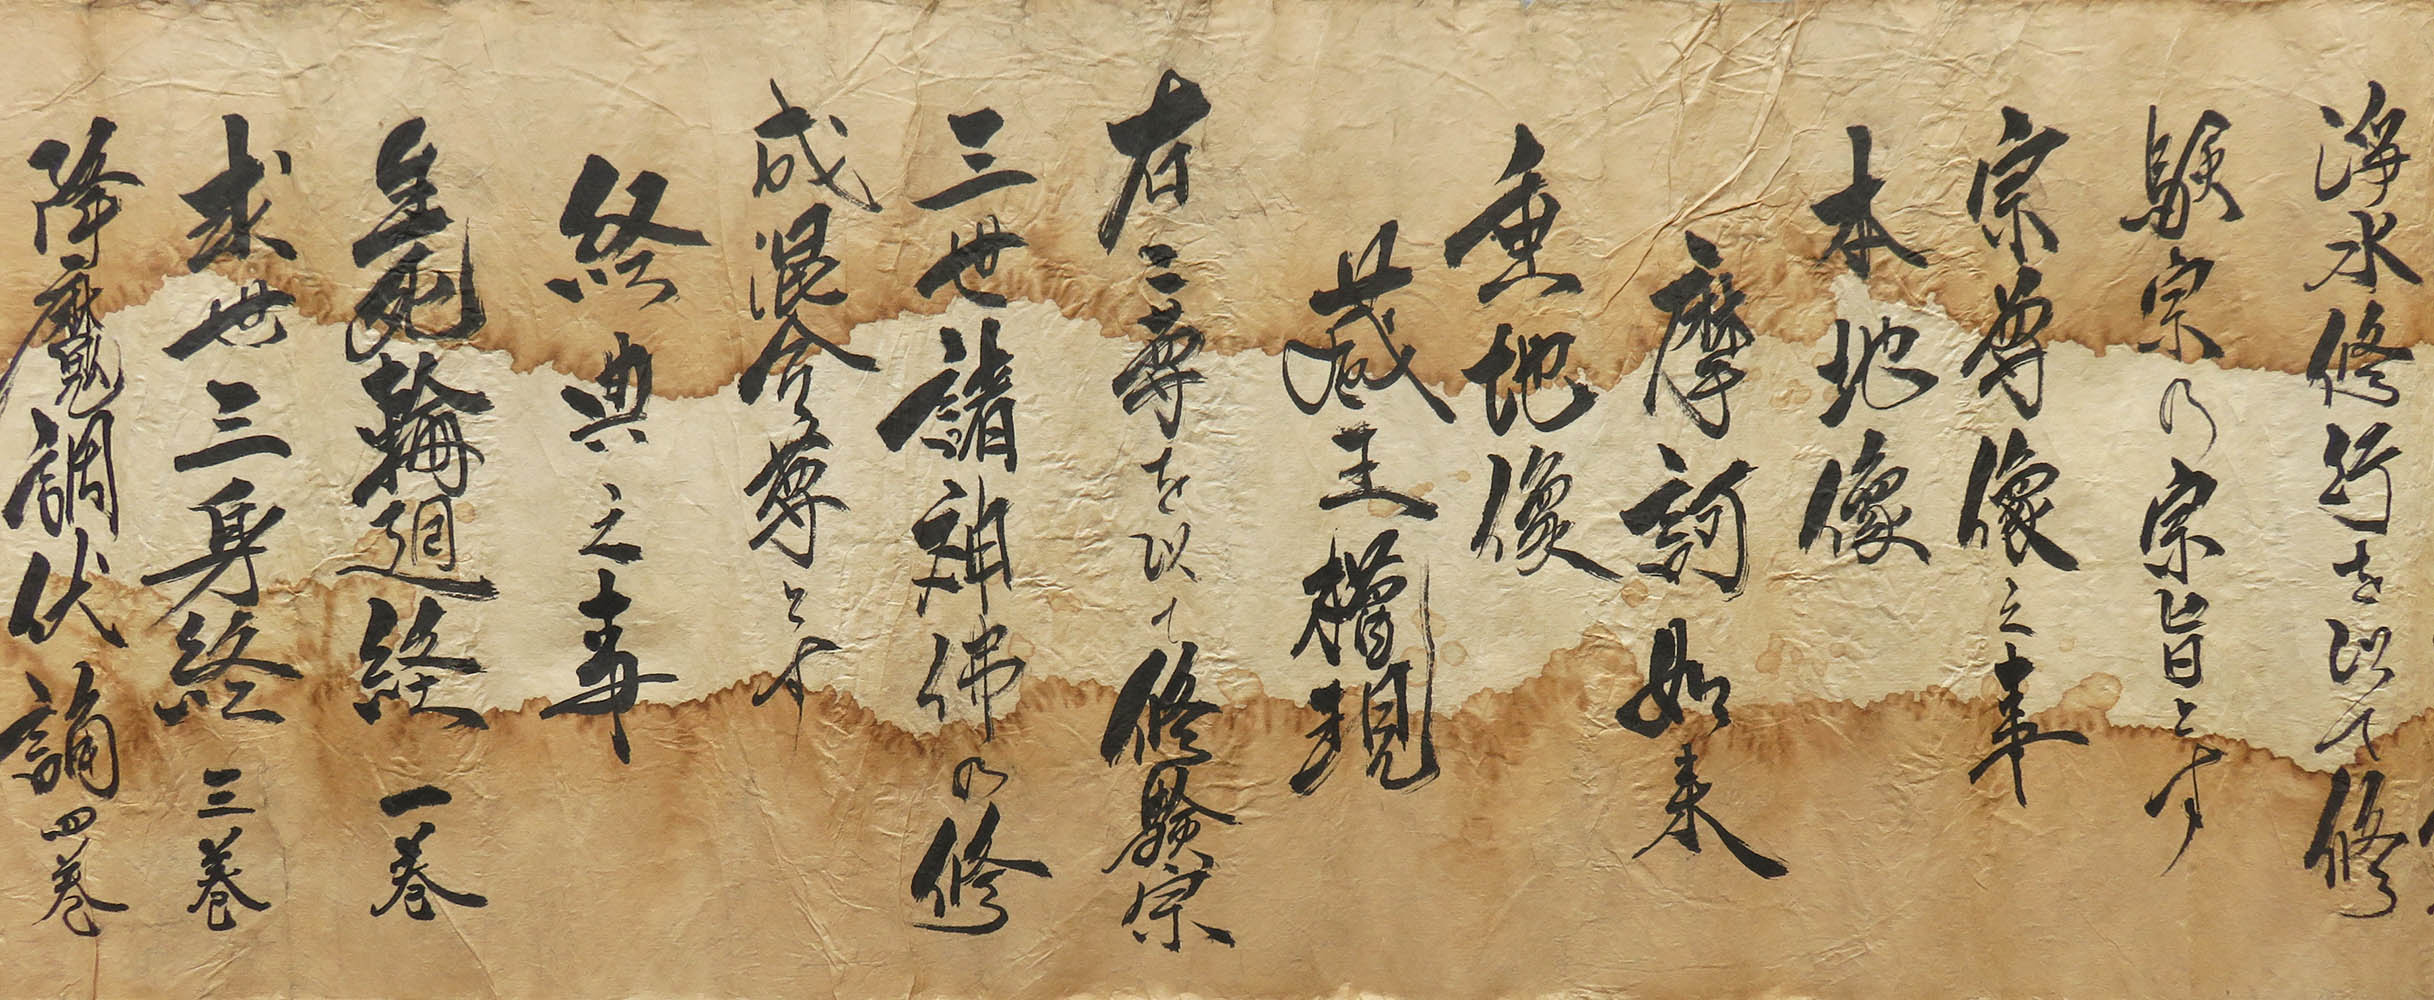 浄水修行を以て修
験宗の宗旨とす
宗尊像之事
本地像
摩訶如来
垂地像
蔵王権現
右二尊を以て修験宗
三世諸神佛の修
成混合尊とす
経典之事
生死輪廻経 一巻
求世三身経 三巻
降魔調伏誦 四巻